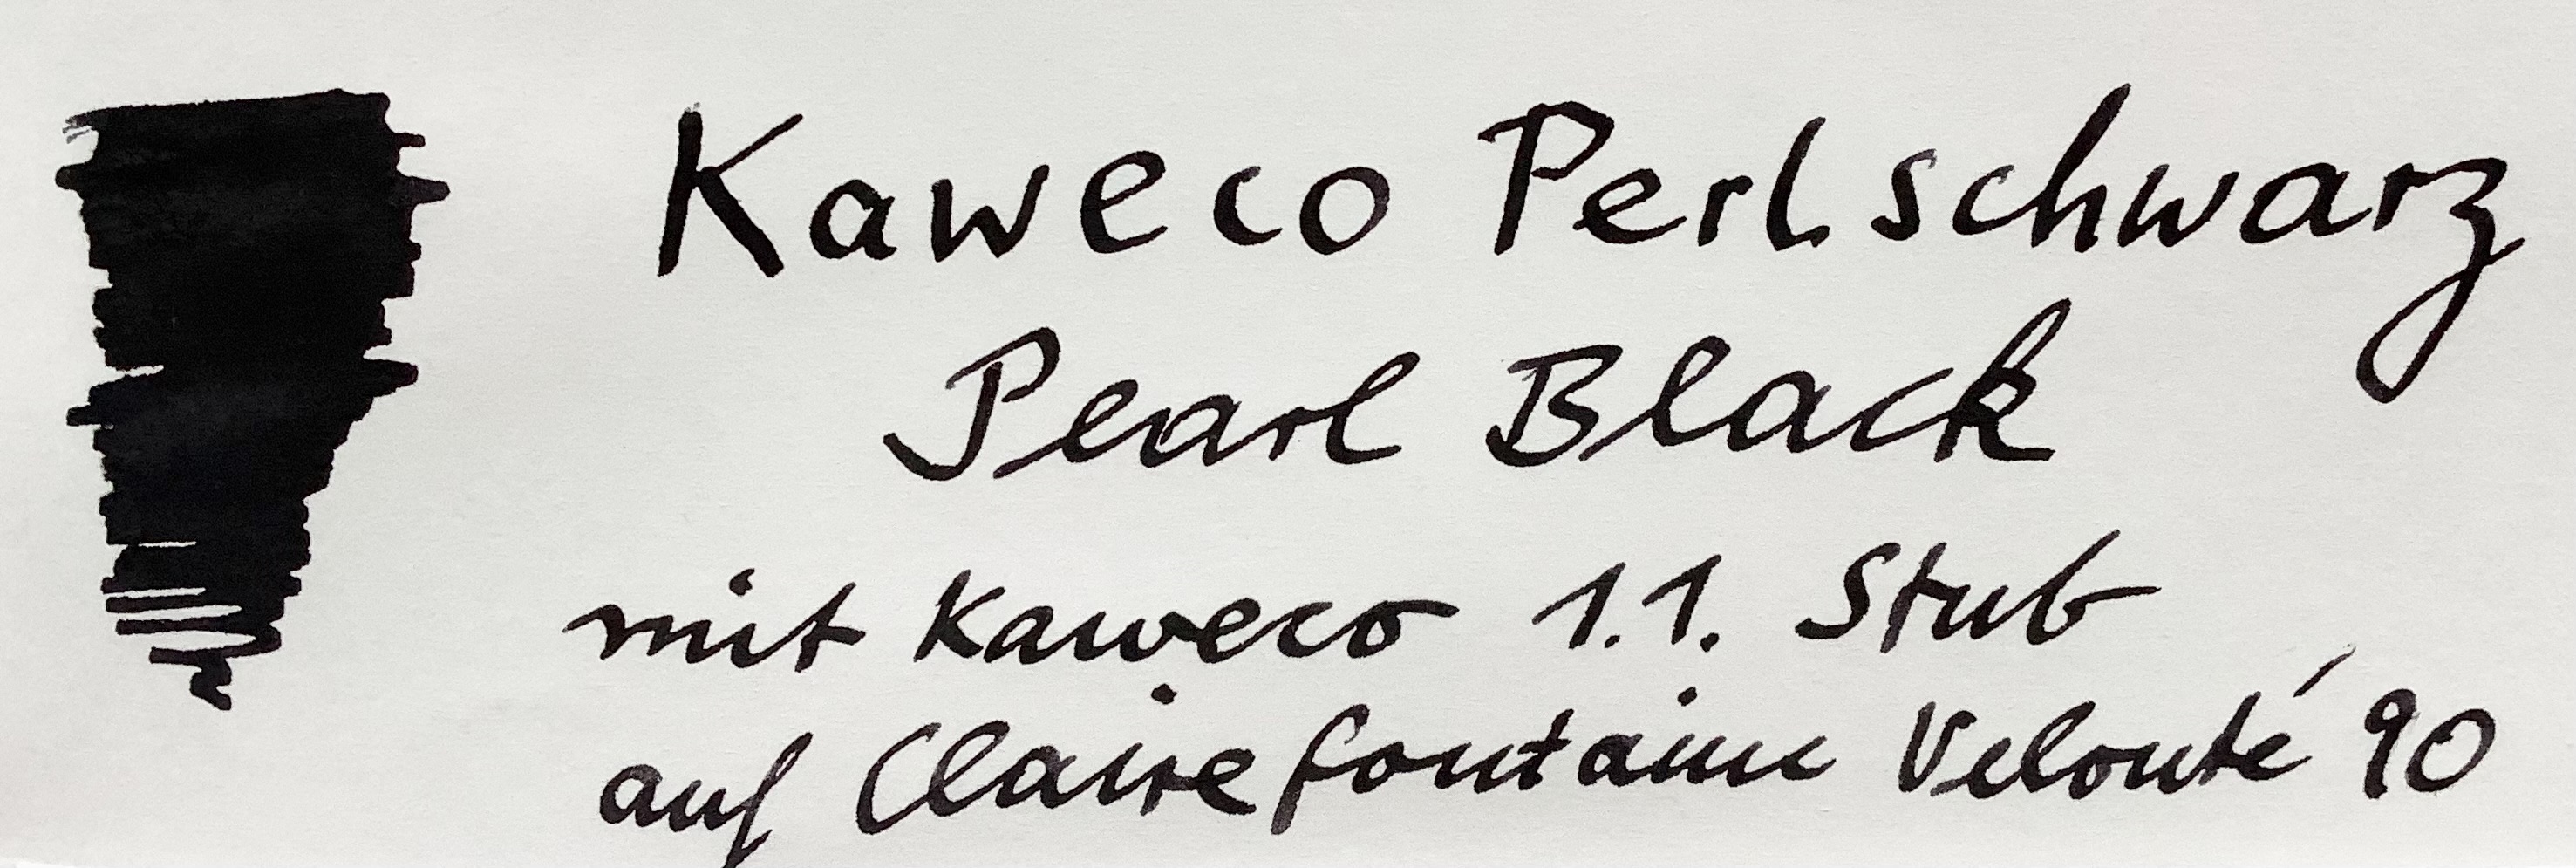 Kaweco Perlschwarz
Pearl Black
mit Kaweco 1.1. Stub
auf Clairefontaine Velouté 90